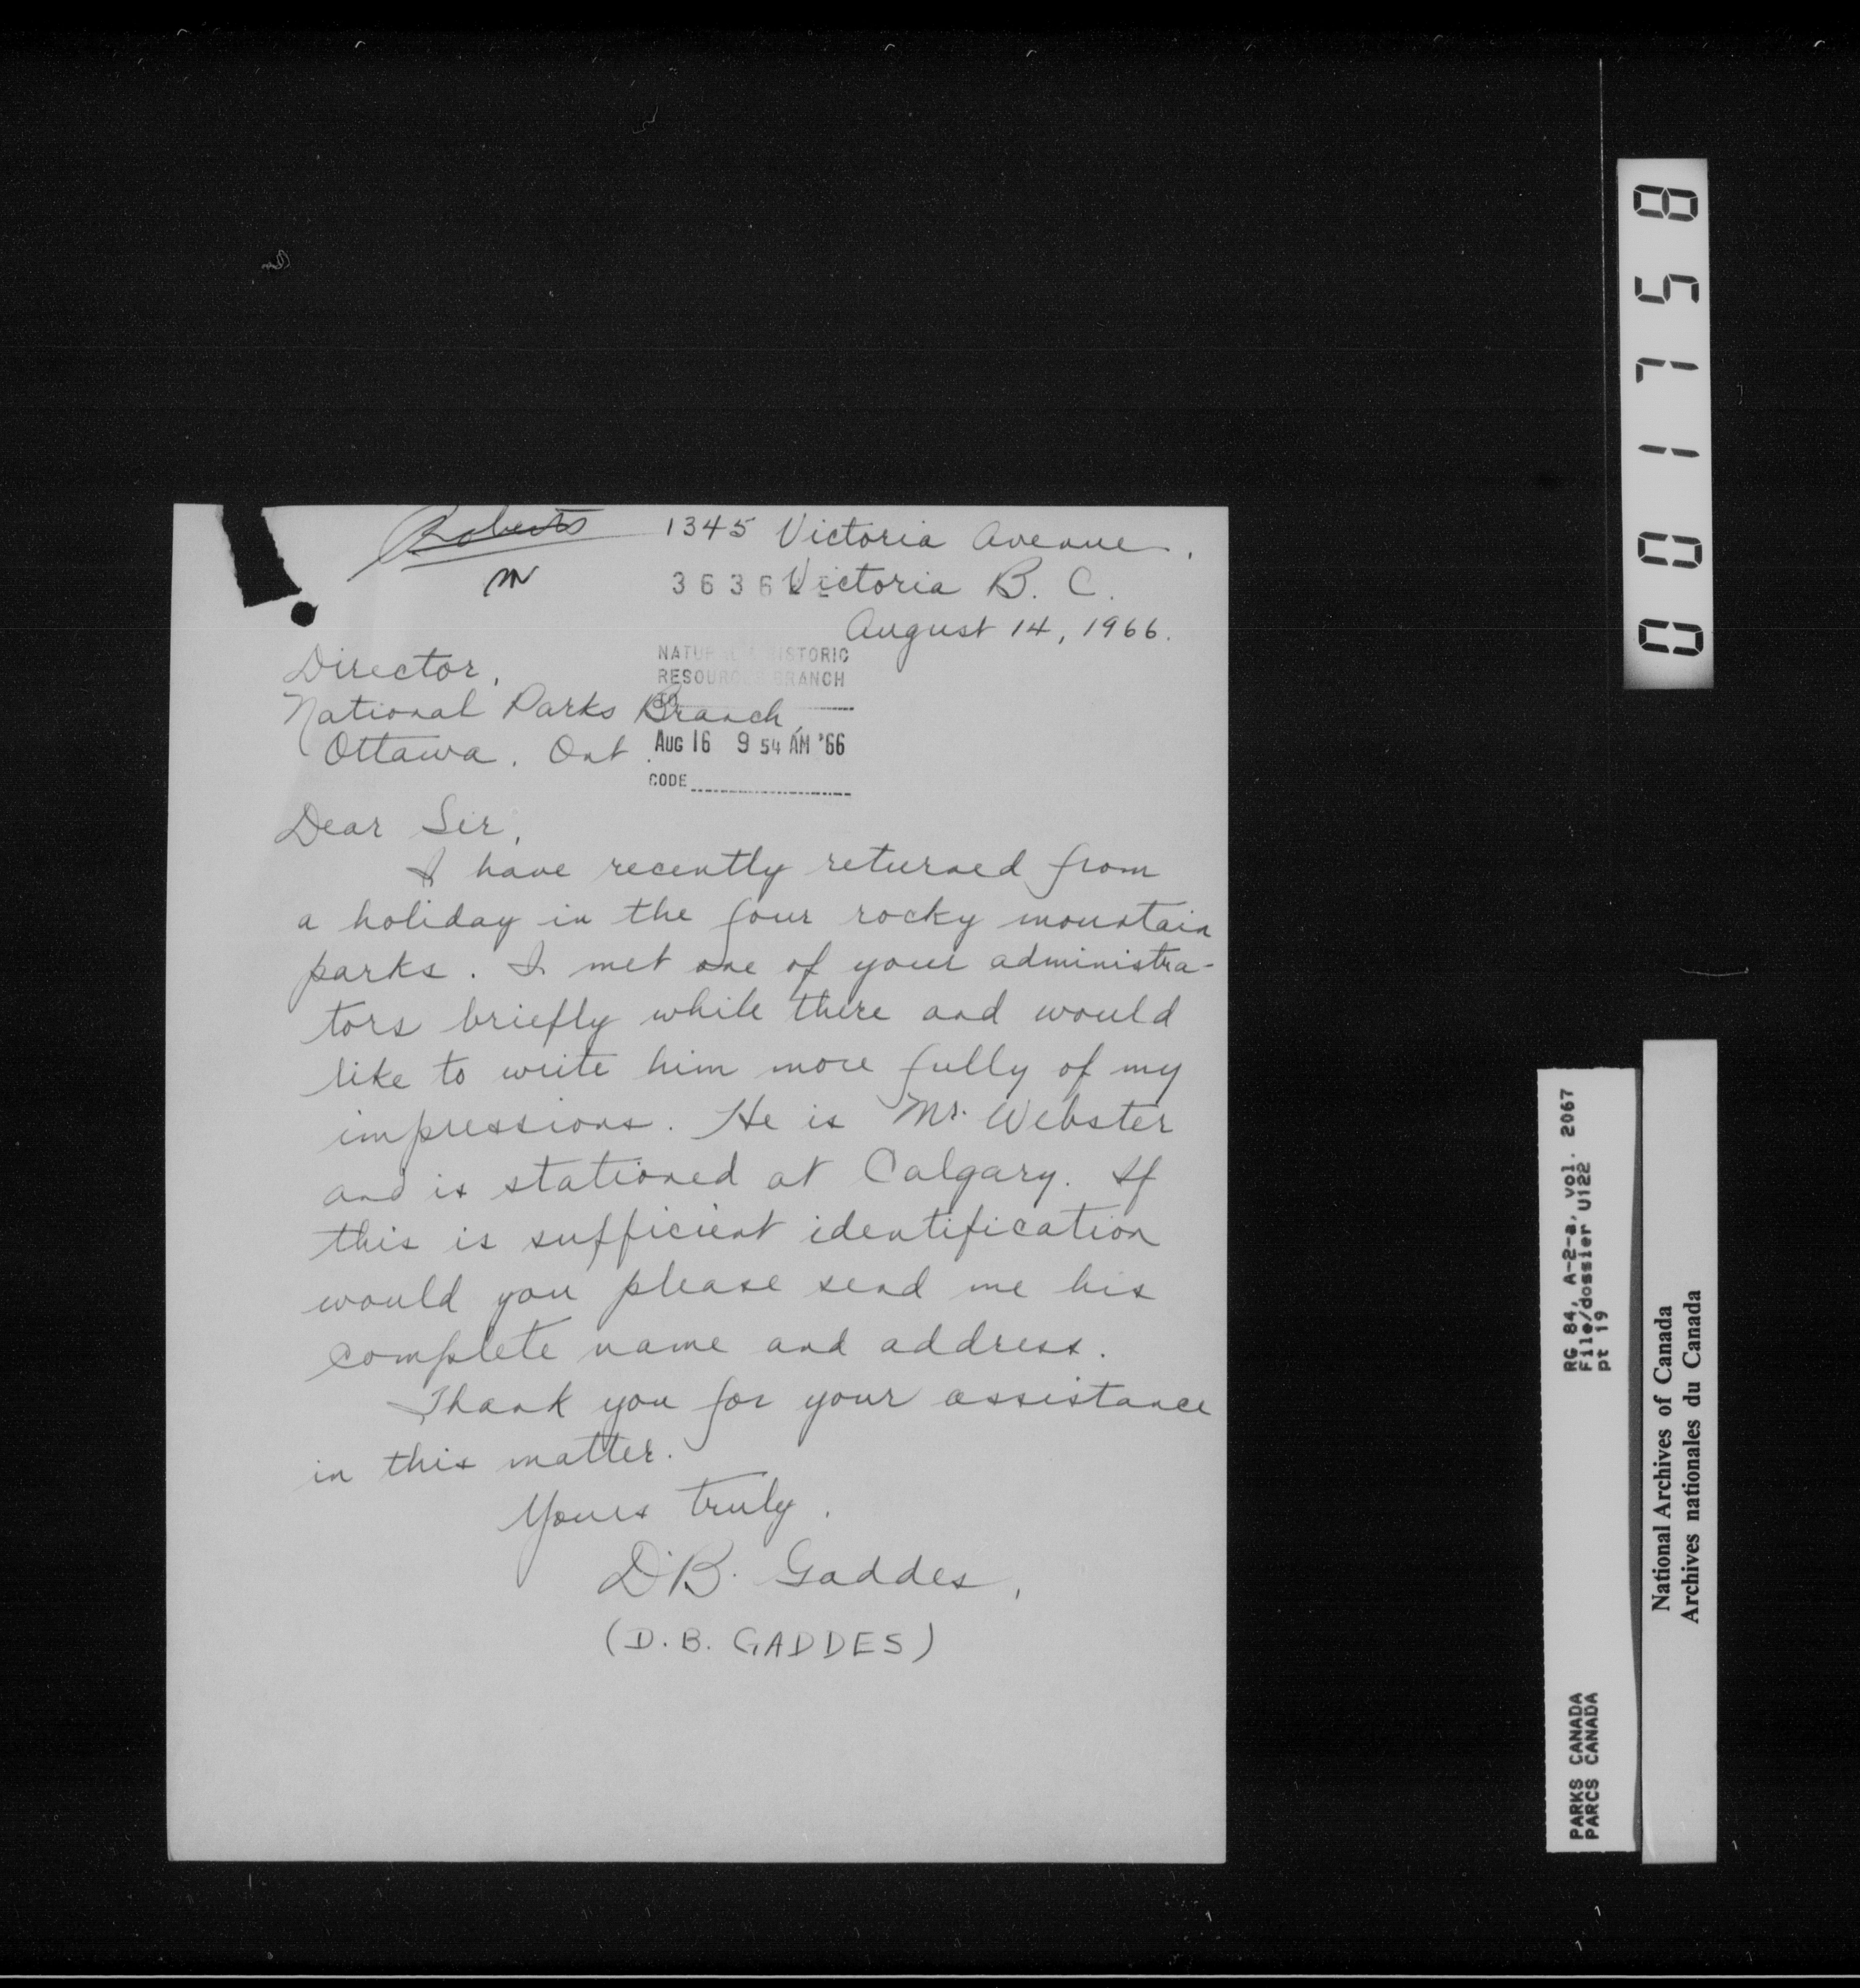 Roberts
1345 Victoria Avenue.
3636
Victoria B. C.
August 14, 1966.
NATURAL & HISTORIC
RESOURCES BRANCH
TO
Director,
National Parks Branch
Ottawa. Ont.
AUG 16 9 54 AM '66
CODE
Dear Sir,
I have recently returned from
a holiday in the four rocky mountain
parks. I met one of your administra-
tors briefly while there and would
like to write him more fully of my
impressions. He is Mr. Webster
and is stationed at Calgary. If
this is sufficient identification
would you please send me his
complete name and address.
Thank you for your assistance
in this matter.
Yours truly.
D.B. Gaddes,
(D. B. GADDES)
001758
RG 84, A-2-a, vol. 2067
File/dossier U122
pt 19
PARKS CANADA
PARCS CANADA
National Archives of Canada
Archives nationales du Canada